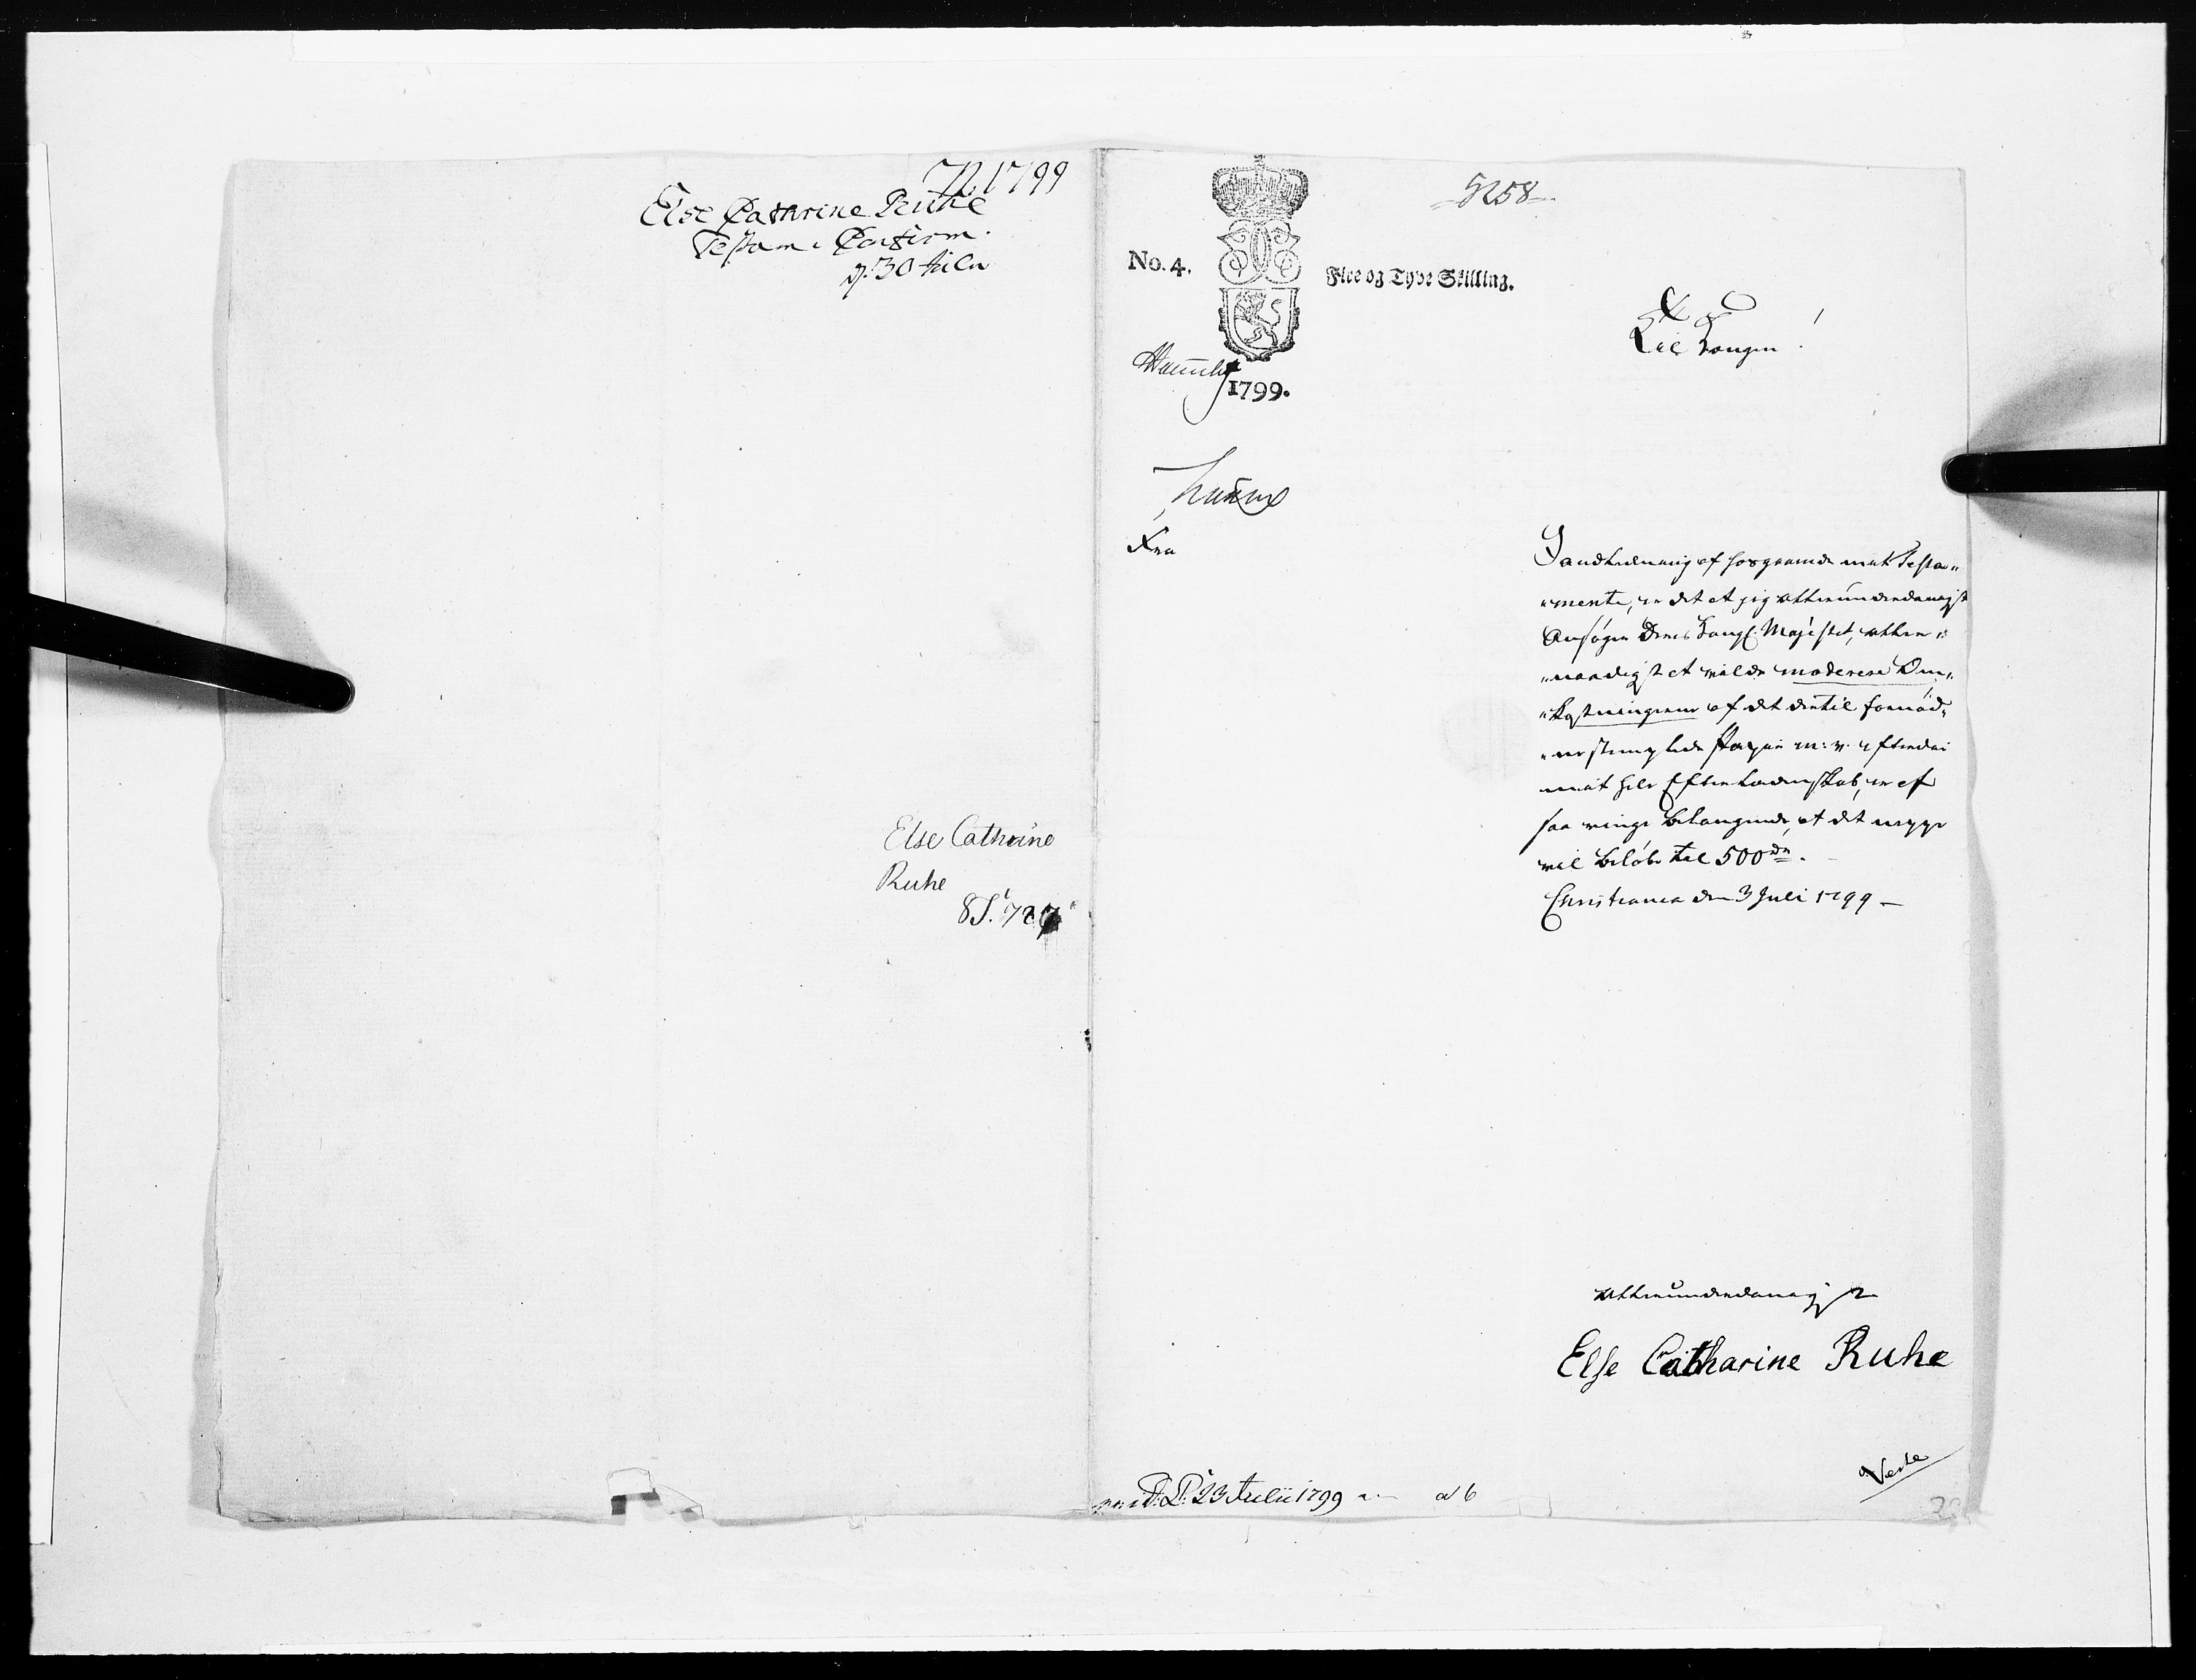 1799
Else Catrine Ruhe
Testam: Confirm.
d. 30 Julii
Else Catharine
Ruhe
8S. 727
5258
No. 4.
Fire og Tyve Skilling.
1799.
Til Kongen!
I andledning af hosgaaende mit Testa„
„mente, er det at jeg allerunderdanigst
Ansøger Deres Kongl: Majestet, aller„
„naadigst at vilde moderere Om„
„kostningerne af det dertil fornød„
„ne stemplede Papiir m: v: efterdi
mit hele Efterladenskab, er af
saa ringe belangende, at det neppe
vil beløbe til 500 rdr.
Christiania den 3 Juli 1799 —
allerunderdanigst
Else Catharine Ruhe
23 Julii 1799